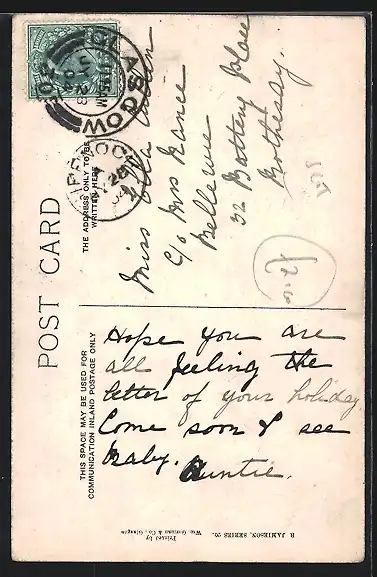 POST CARD
THE ADDRESS ONLY TO BE
WRITTEN HERE
THIS SPACE MAY BE USED FOR
COMMUNICATION INLAND POSTAGE ONLY
GLASGOW
Miss Ella
C/o Mrs Rance
Bellevue
32 Battery Place
Rothesay.
Hope you are
all feeling the
better of your holiday
Come soon & see
Baby. Auntie.
R. JAMIESON, SERIES 20.
Printed by
& Co., Glasgow
2-10